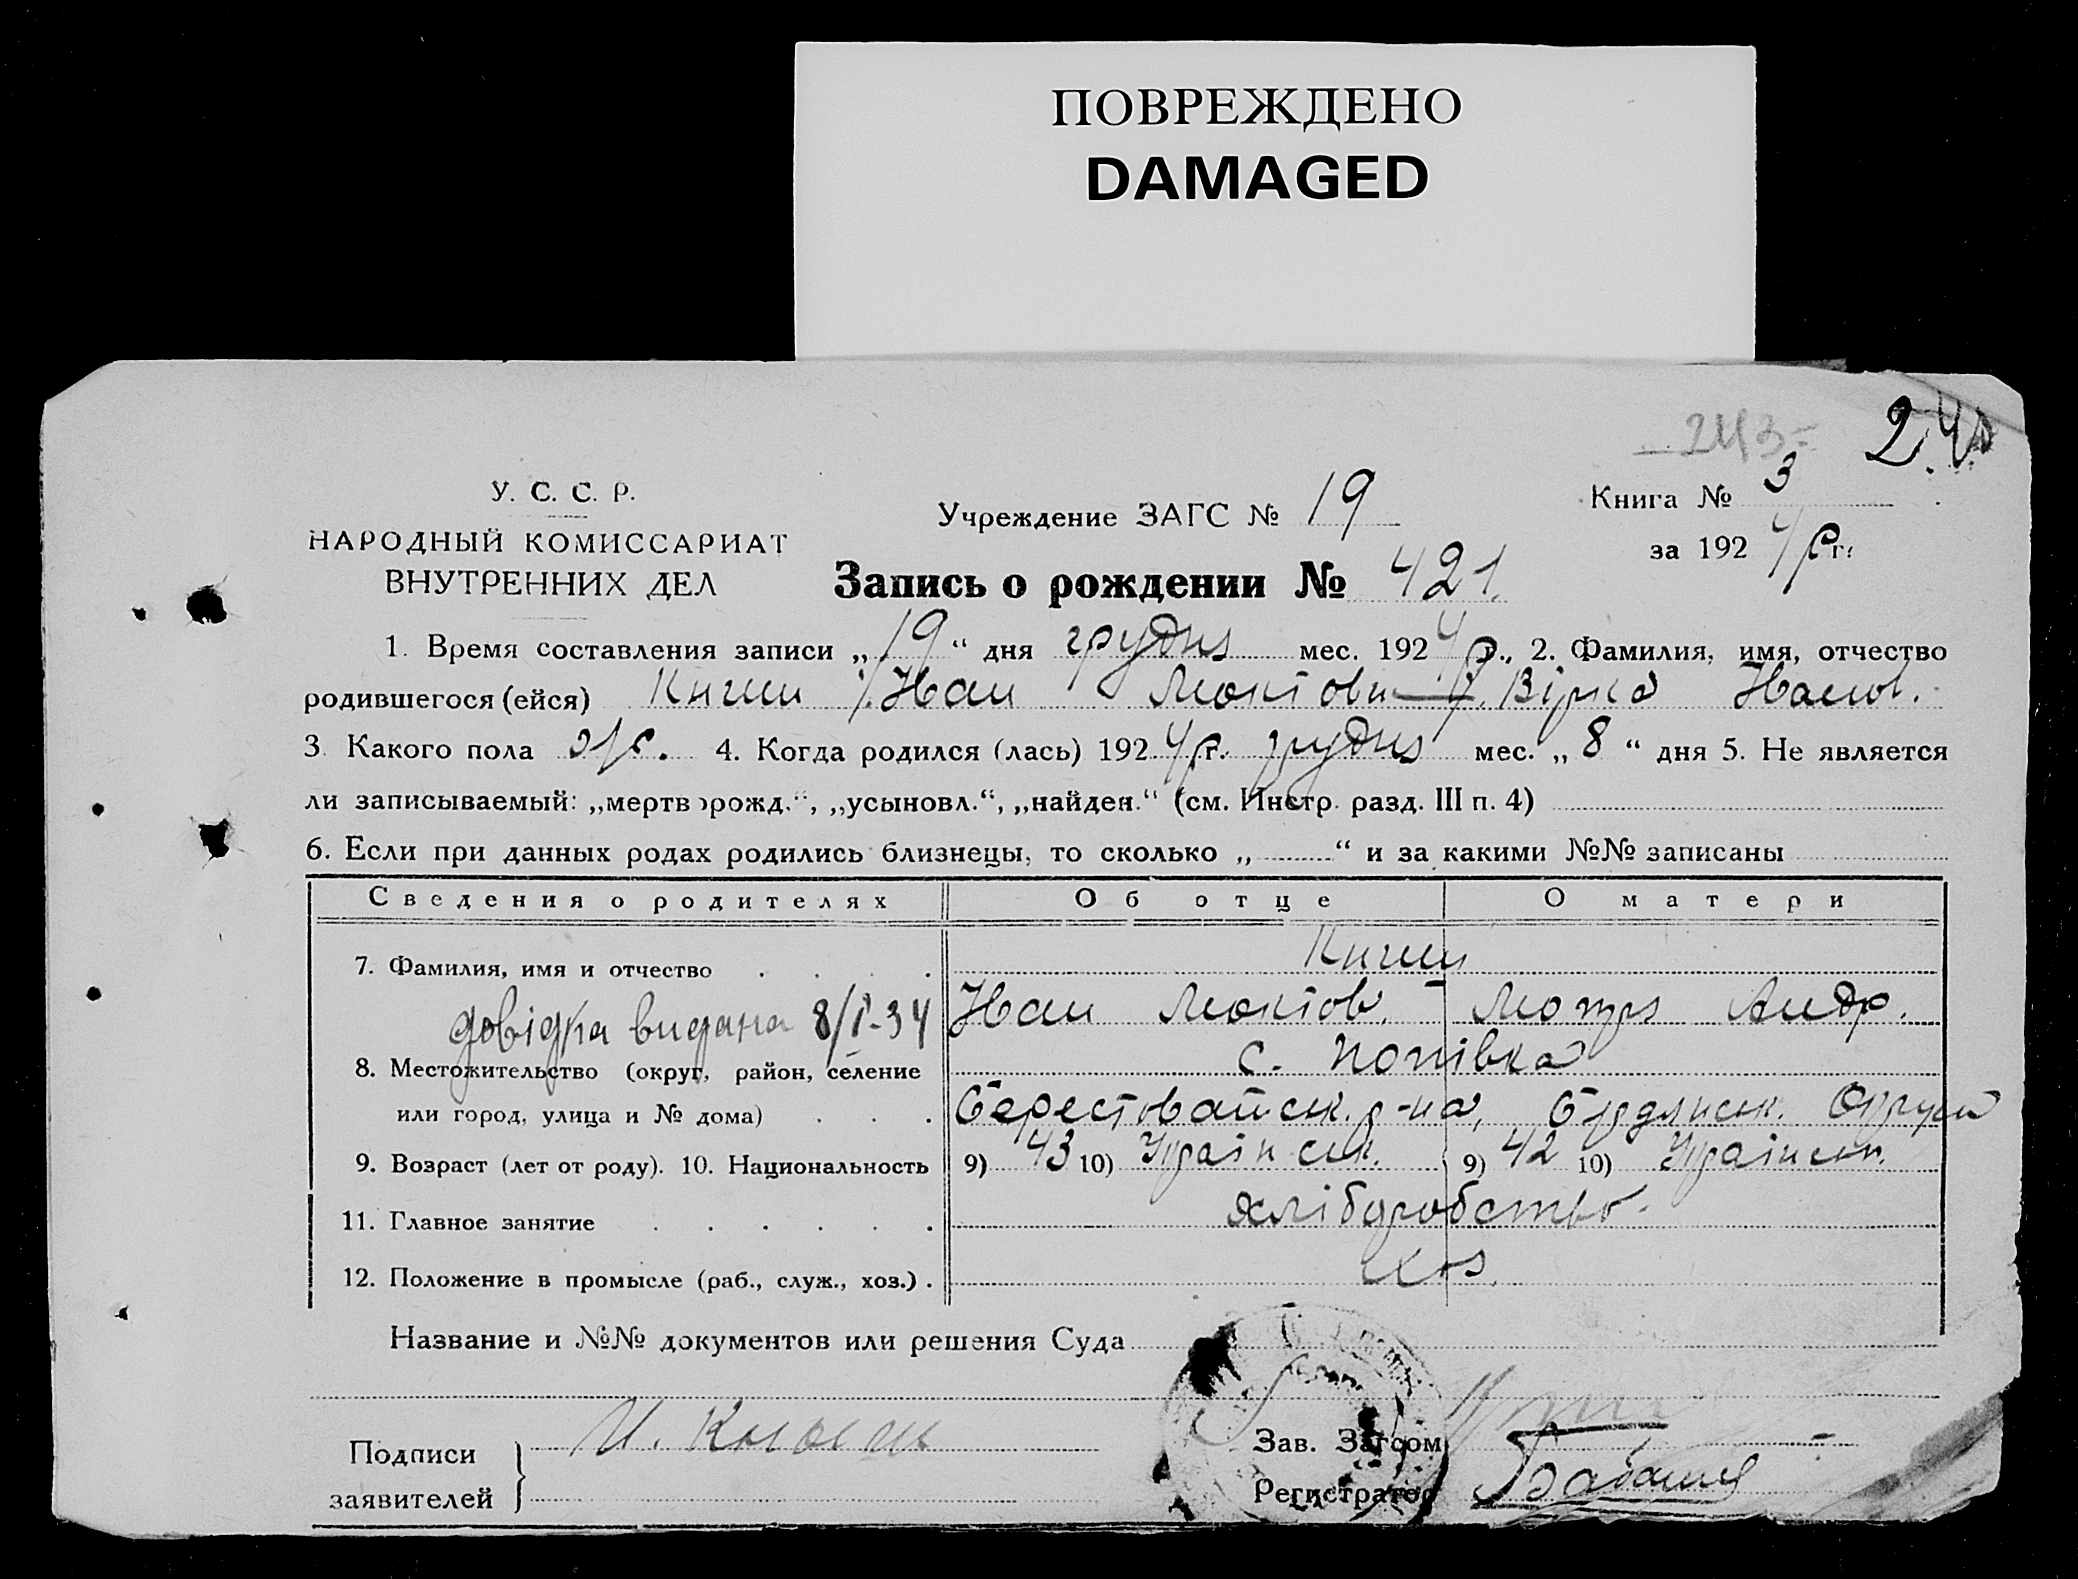 ПОВРЕЖДЕНО
DAMAGED
243
У. С. С. Р.
НАРОДНЫЙ КОМИССАРИАТ
ВНУТРЕННИХ ДЕЛ
Учреждение ЗАГС № 19
Книга № 3
за 1924 р г.
Запись о рождении № 421.
1. Время составления записи „19“ дня грудня мес. 1924 р г., 2. Фамилия, имя, отчество
родившегося (ейся) Книш Іван Віра Іванов.
3. Какого пола 4. Когда родился (лась) 1924 р г. грудня мес. „8“ дня 5. Не является
ли записываемый: „мертворожд.“, „усыновл.“, „найден.“ (см. Инстр. разд. III п. 4)
6. Если при данных родах родились близнецы, то сколько „ “ и за какими №№ записаны
Сведения о родителях Об отце О матери
7. Фамилия, имя и отчество Книш
довідка видана 8/I-34 Іван Мотря Андр.
8. Местожительство (округ, район, селение с. Попівка
или город, улица и № дома) Берестовайськ. р-на, Бердянськ. Округи
9. Возраст (лет от роду). 10. Национальность 9) 43 10) Українськ. 9) 42 10) Українськ.
11. Главное занятие хліборобство.
12. Положение в промысле (раб., служ., хоз.).
Название и №№ документов или решения Суда
Подписи
заявителей
И. Кныш
Зав. Загсом
Регистратор